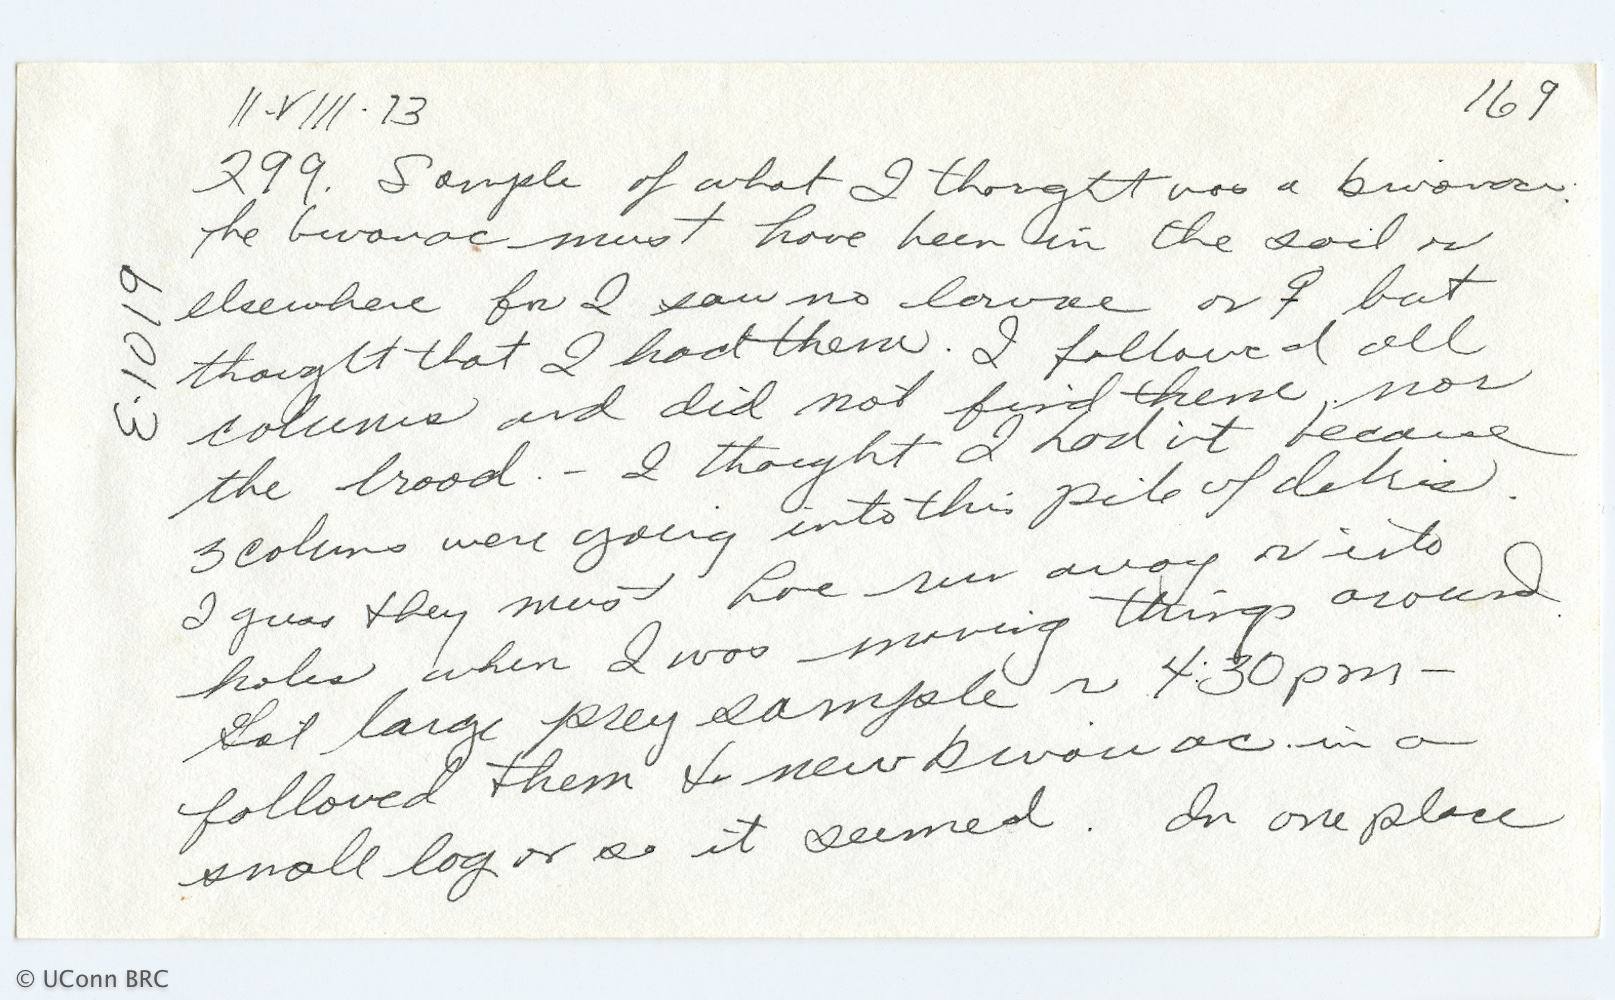 169
11.VIII.73
299. Sample of what I thought was a bivouac.
The bivouac must have been in the soil or
elsewhere for I saw no larvae or ♀ but
thought that I had them. I followed all
columns and did not find them, nor
the brood. - I thought I had it because
3 columns were going into this pile of debris.
I guess they must have run away or into
holes when I was moving things around.
Got large prey sample ~ 4:30pm -
followed them to new bivouac in a
small log or so it seemed. In one place
E:1019
© UConn BRC